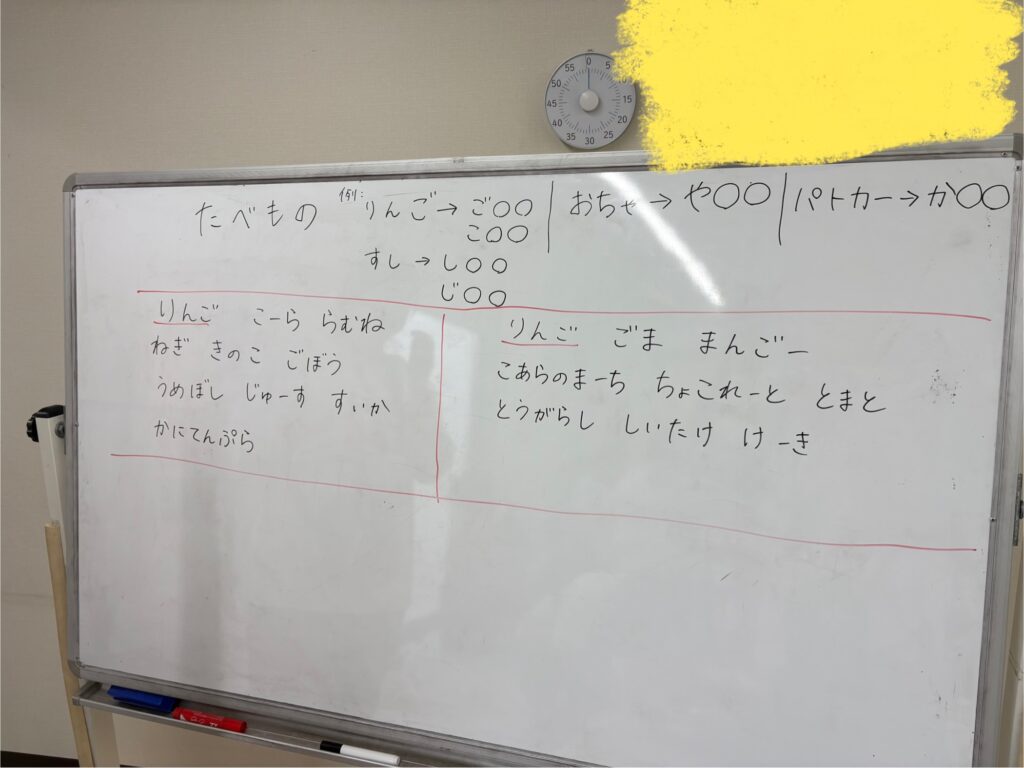 たべもの 例: りんご→ご○○ | おちゃ→や○○ | パトカー→か○○
こ○○
すし→し○○
じ○○
りんご こーら らむね
ねぎ きのこ ごぼう
うめぼし じゅーす すいか
かにてんぷら
りんご ごま まんごー
こあらのまーち ちょこれーと とまと
とうがらし しいたけ けーき
0 5 15 20 25 30 35 40 45 50 55